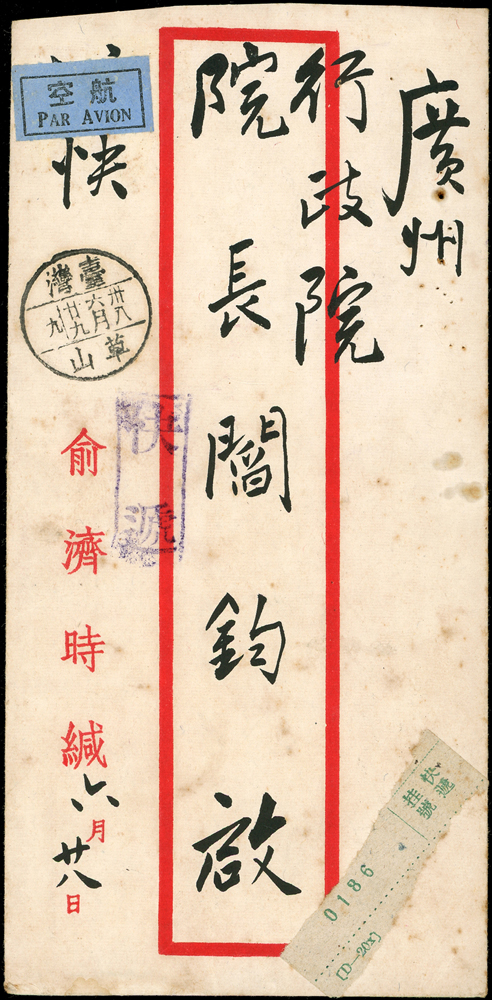 廣州
行政院
院長閻鈞啟
航空
PAR AVION
快
臺灣
卅八
六月
廿九
十九
草山
快遞
俞濟時緘
六月廿八日
快遞
挂號
0186
[D—20x]